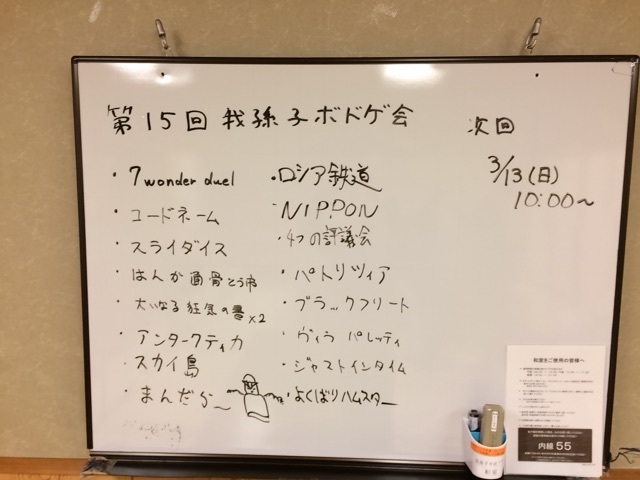 第15回 我孫子ボドゲ会
次回
3/13(日)
10:00〜
・7 wonder duel
・コードネーム
・スライダイス
・はんか通骨とう市
・大いなる狂気の書×2
・アンタークティカ
・スカイ島
・まんだら〜
・ロシア鉄道
・NIPPON
・4つの評議会
・パトリツィア
・ブラックフリート
・ヴィラ パレッティ
・ジャストインタイム
・よくばりハムスター
和室をご使用の皆様へ
内線 55